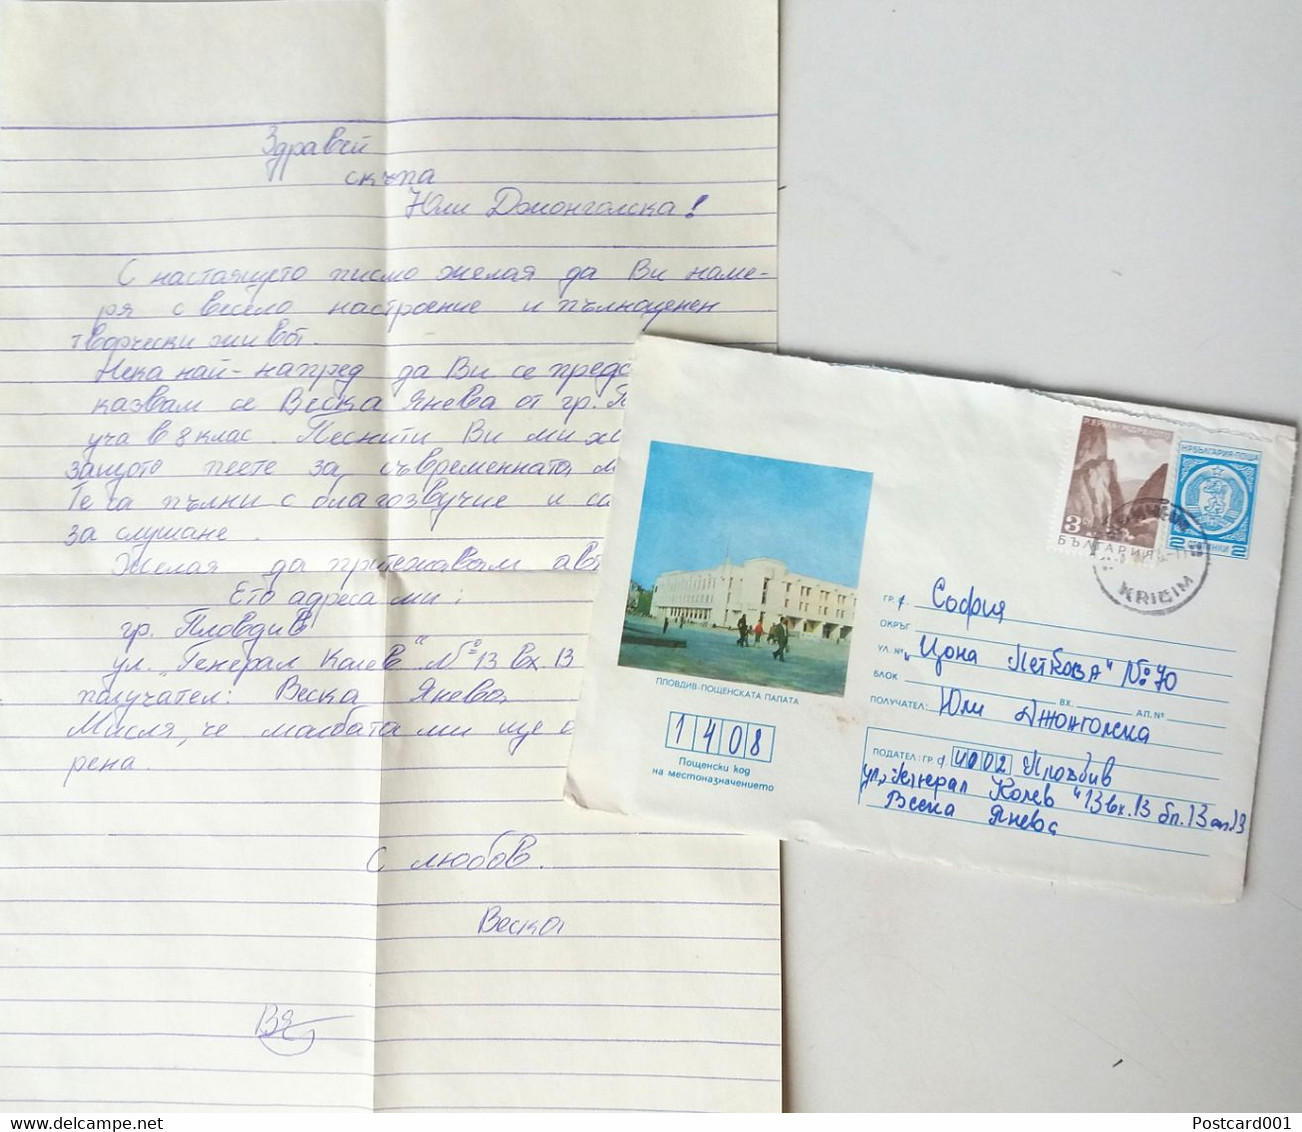 Здравей
скъпа
Юли Джонголска!
С настоящето писмо желая да Ви наме-
ря с весело настроение и пълноценен
творчески живот.
Нека най-напред да Ви се предс
казвам се Веска Янева от гр.
уча в 8 клас. Песните Ви ми ха
защото пеете за съвременната м
Те са пълни с благозвучие и са
за слушане.
Желая да притежавам авт
Ето адреса ми:
гр. Пловдив
ул. „Генерал Колев" №13 вх 13
получател: Веска Янева,
Мисля, че молбата ми ще
рена.
С любов.
Веска
ВЯ
РЕРМА-ЖДРЕЛОТО
3 СТ
БЪЛГАРИЯ
НР БЪЛГАРИЯ·ПОЩА
2 СТОТИНКИ 2
KRIČIM
ПЛОВДИВ-ПОЩЕНСКАТА ПАЛАТА
1408
Пощенски код
на местоназначението
ГР. София
ОКРЪГ
УЛ. № „Цона Петкова" №70
БЛОК ВХ. АП.№
ПОЛУЧАТЕЛ: Юли Джонголска
ПОДАТЕЛ: ГР. 4002 Пловдив
ул. „Генерал Колев" 13 вх. 13 бл. 13 ап. 13
Веска Янева
Postcard001